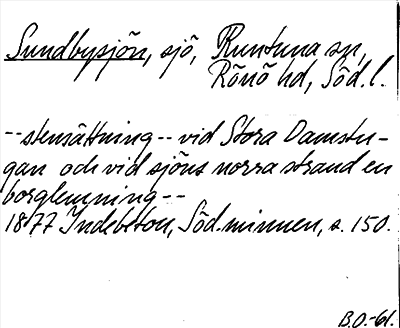 Sundbysjön, sjö, Runtuna sn,
Rönö hd, Söd. l.
-- stensättning -- vid Stora Damstu-
gan och vid sjöns norra strand en
borglemning --
1877 Indebetou, Söd. minnen, s. 150.
B.O.-61.